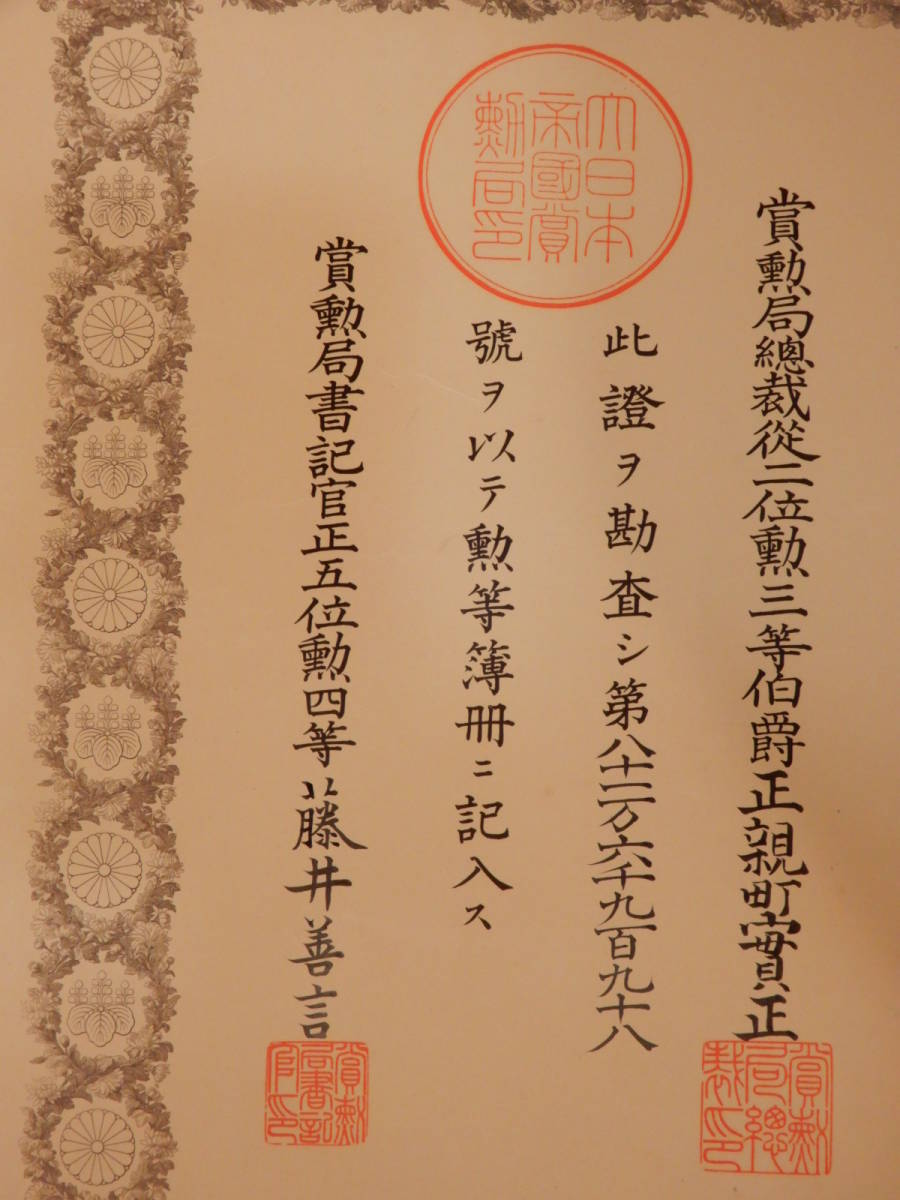 賞勲局總裁從二位勲三等伯爵正親町實正
大日本
帝國賞
勲局印
此證ヲ勘査シ第八十二万六千九百九十八
號ヲ以テ勲等簿冊ニ記入ス
賞勲局書記官正五位勲四等藤井善言
賞勲
局總
裁印
賞勲
局書記
官印